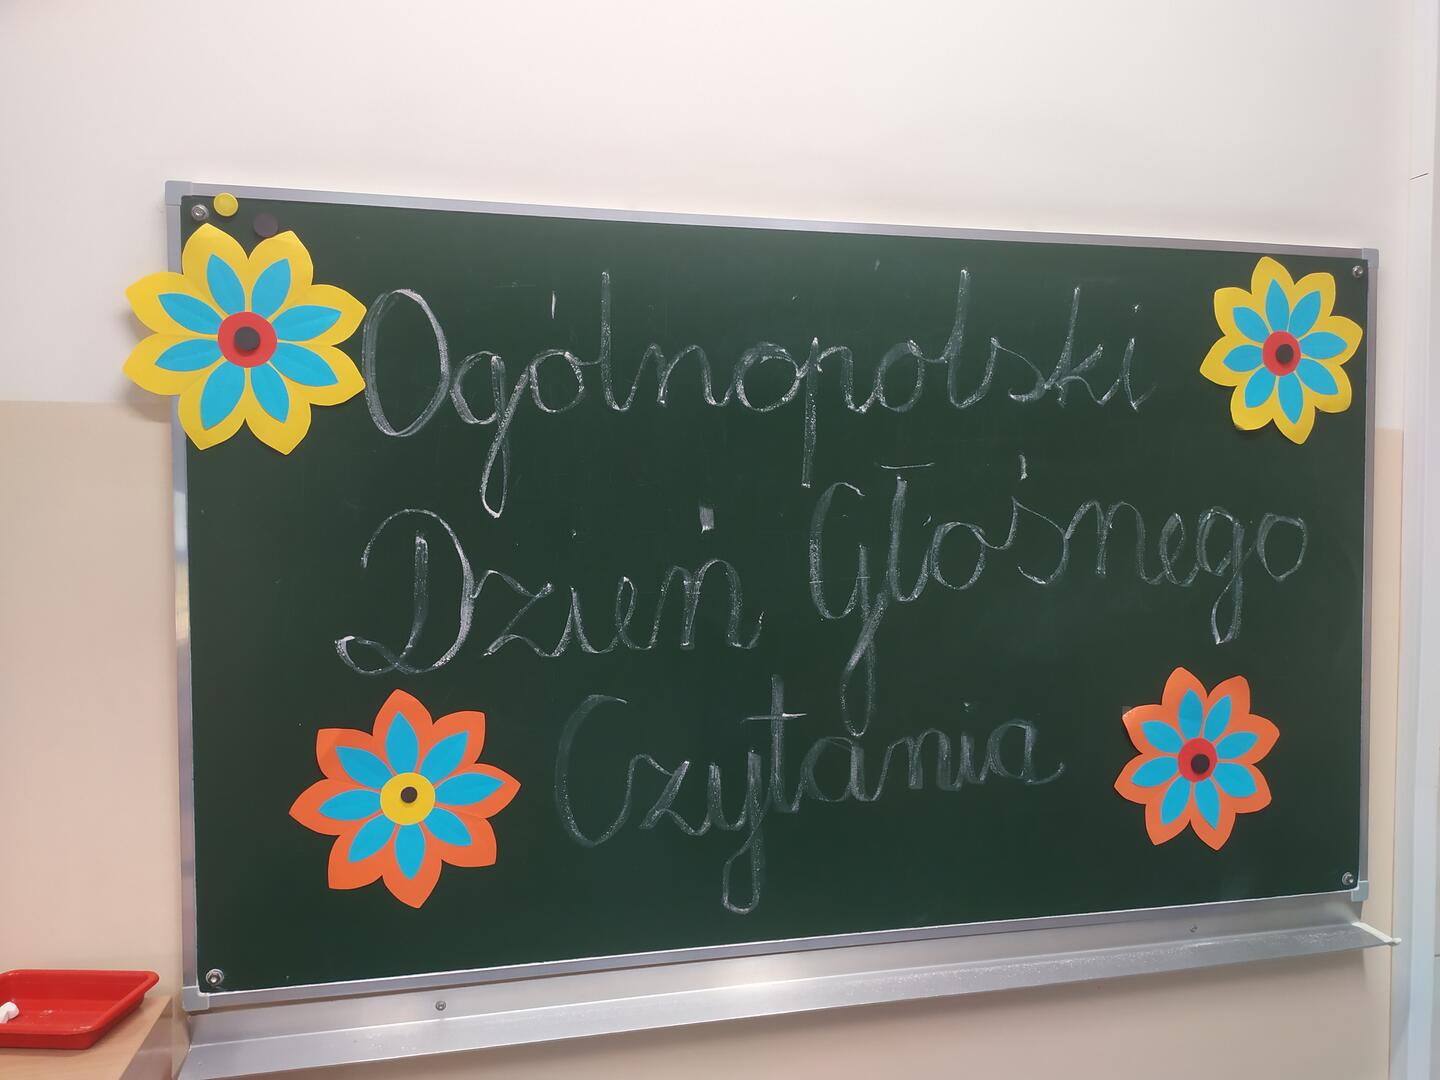 Ogólnopolski
Dzień Głośnego
Czytania